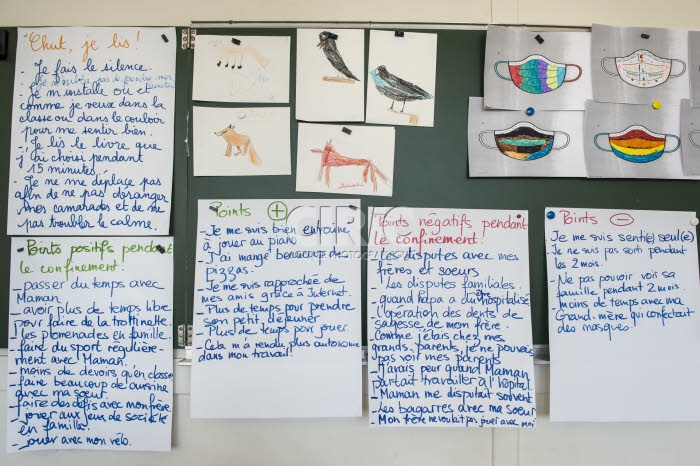 Chut, je lis !
- Je fais le silence.
- Je n'oublie pas de prendre mes lunettes
- Je m'installe où et
comme je veux dans la
classe ou dans le couloir
pour me sentir bien.
- Je lis le livre que
j'ai choisi pendant
15 minutes.
- Je ne me déplace pas
afin de ne pas déranger
mes camarades et de ne
pas troubler le calme.
Points positifs pendant
le confinement:
- passer du temps avec
Maman
- avoir plus de temps libre
pour faire de la trottinette.
- les promenades en famille.
- faire du sport régulière-
ment avec Maman.
- moins de devoirs qu'en classe
- faire beaucoup de cuisine
avec ma soeur.
- faire des défis avec mon frère.
- jouer aux jeux de société
en famille.
- jouer avec mon vélo.
Points +
- Je me suis bien entraîné
à jouer au piano
- J'ai mangé beaucoup de
pizzas.
- Je me suis rapprochée de
mes amis grâce à Internet.
- Plus de temps pour prendre
son petit déjeuner
- Plus de temps pour jouer.
- Cela m'a rendu plus autonome
dans mon travail.
Points négatifs pendant
le confinement:
- Les disputes avec mes
frères et soeurs
- Les disputes familiales.
- quand Papa a été hospitalisé
- l'opération des dents de
sagesse de mon frère.
- Comme j'étais chez mes
grands-parents, je ne pouvais
pas voir mes parents
- J'avais peur quand Maman
partait travailler à l'hôpital.
- Maman me disputait souvent
- Les bagarres avec ma soeur
- Mon frère ne voulait pas jouer avec moi
Points -
Je me suis senti(e) seul(e)
- Je ne suis pas sorti pendant
les 2 mois.
- Ne pas pouvoir voir sa
famille pendant 2 mois
- moins de temps avec ma
Grand-mère qui confectait
des masques.
CIRIC